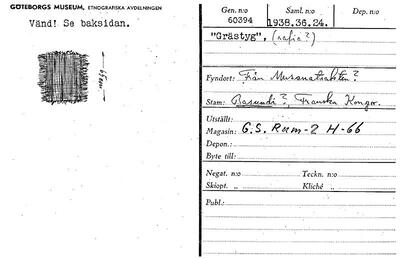 GÖTEBORGS MUSEUM, ETNOGRAFISKA AVDELNINGEN
Vänd! Se baksidan.
Gen. n:o Saml. n:o Dep. n:o
60394 1938.36.24.
"Grästyg". (rafia?)
Fyndort: Från Musanatrakten?
Stam: Basundi?, Franska Kongo.
Utställt:
Magasin: G.S. Rum-2 H-66
Depon.:
Byte till:
Negat. n:o Teckn. n:o
Skiopt. „ Kliché „
Publ.: